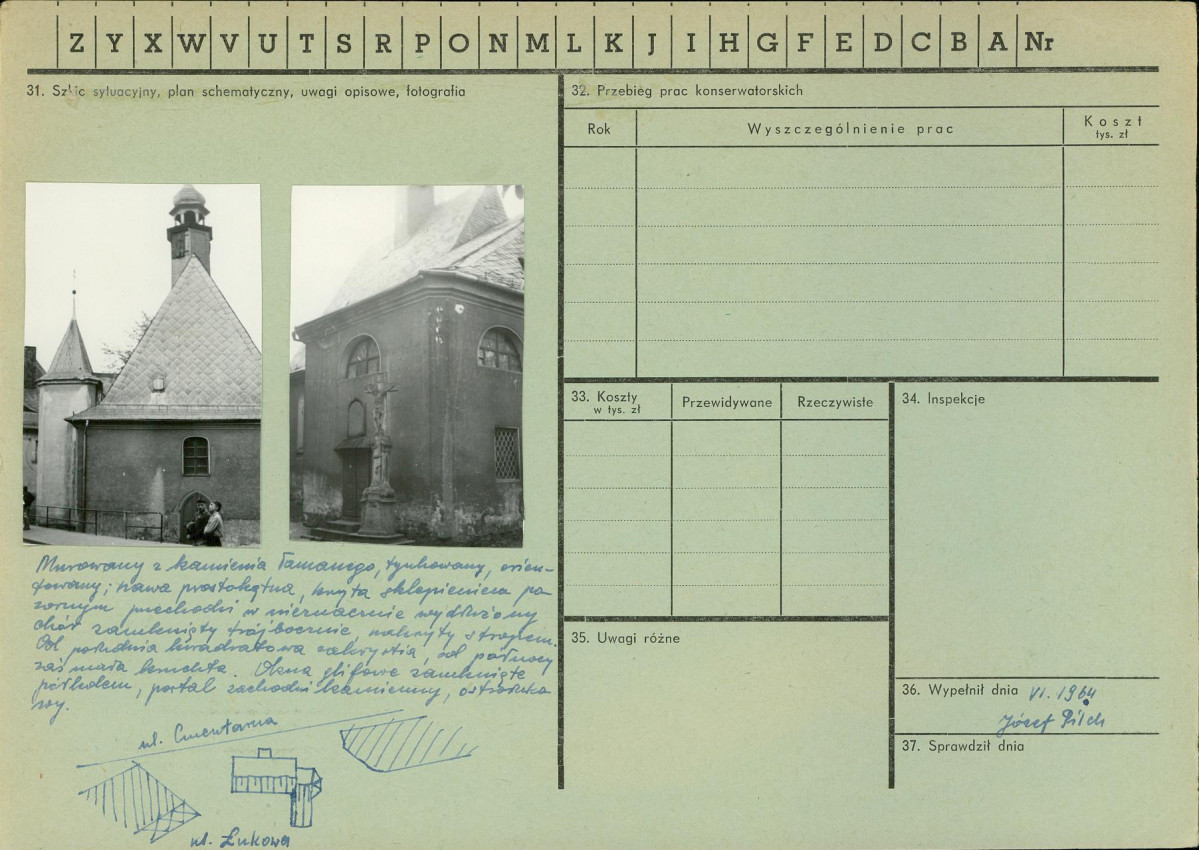 Z Y X W V U T S R P O N M L K J I H G F E D C B A Nr
31. Szkic sytuacyjny, plan schematyczny, uwagi opisowe, fotografia
Murowany z kamienia łamanego, tynkowany, orien-
towany; nawa prostokątna, kryta sklepieniem po
zornym przechodzi w nieznacznie wydłużony
chór zamknięty trójbocznie, nakryty stropem.
Od południa kwadratowa zakrystia, od północy
zaś mała kruchta. Okna glifowe zamknięte
półkolem, portal zachodni kamienny, ostrołuko
wy.
ul. Cmentarna
ul. Łukowa
32. Przebieg prac konserwatorskich
Rok
Wyszczególnienie prac
Koszt
tys. zł
33. Koszty
w tys. zł
Przewidywane
Rzeczywiste
34. Inspekcje
35. Uwagi różne
36. Wypełnił dnia VI. 1964
Józef Pilch
37. Sprawdził dnia